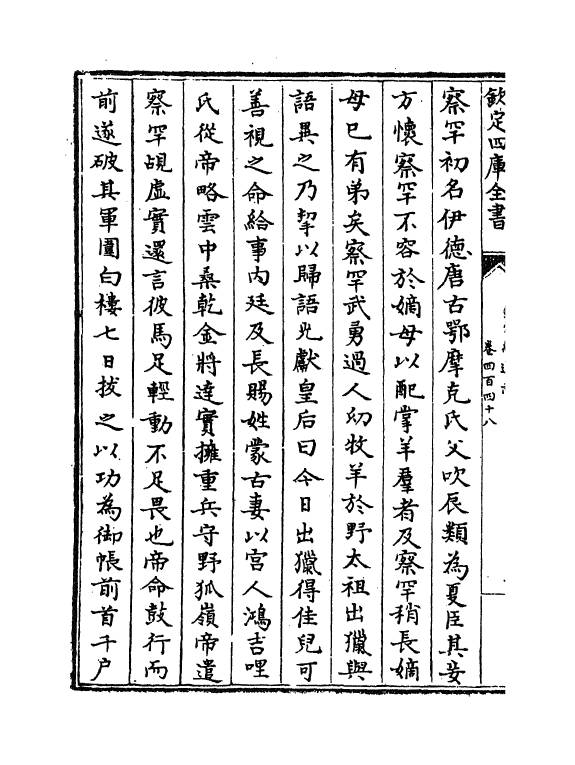 欽定四庫全書
卷四百四十八
察罕初名伊德唐古鄂摩克氏父吹辰類為夏臣其妾
方懷察罕不容於嫡母以配掌羊羣者及察罕稍長嫡
母已有弟矣察罕武勇過人幼牧羊於野太祖出獵與
語異之乃挈以歸語光獻皇后曰今日出獵得佳兒可
善視之命給事内廷及長賜姓蒙古妻以宮人鴻吉哩
氏從帝略雲中桑乾金將達實擁重兵守野狐嶺帝遣
察罕覘虚實還言彼馬足輕動不足畏也帝命鼓行而
前遂破其軍圍白樓七日拔之以功為御帳前首千户